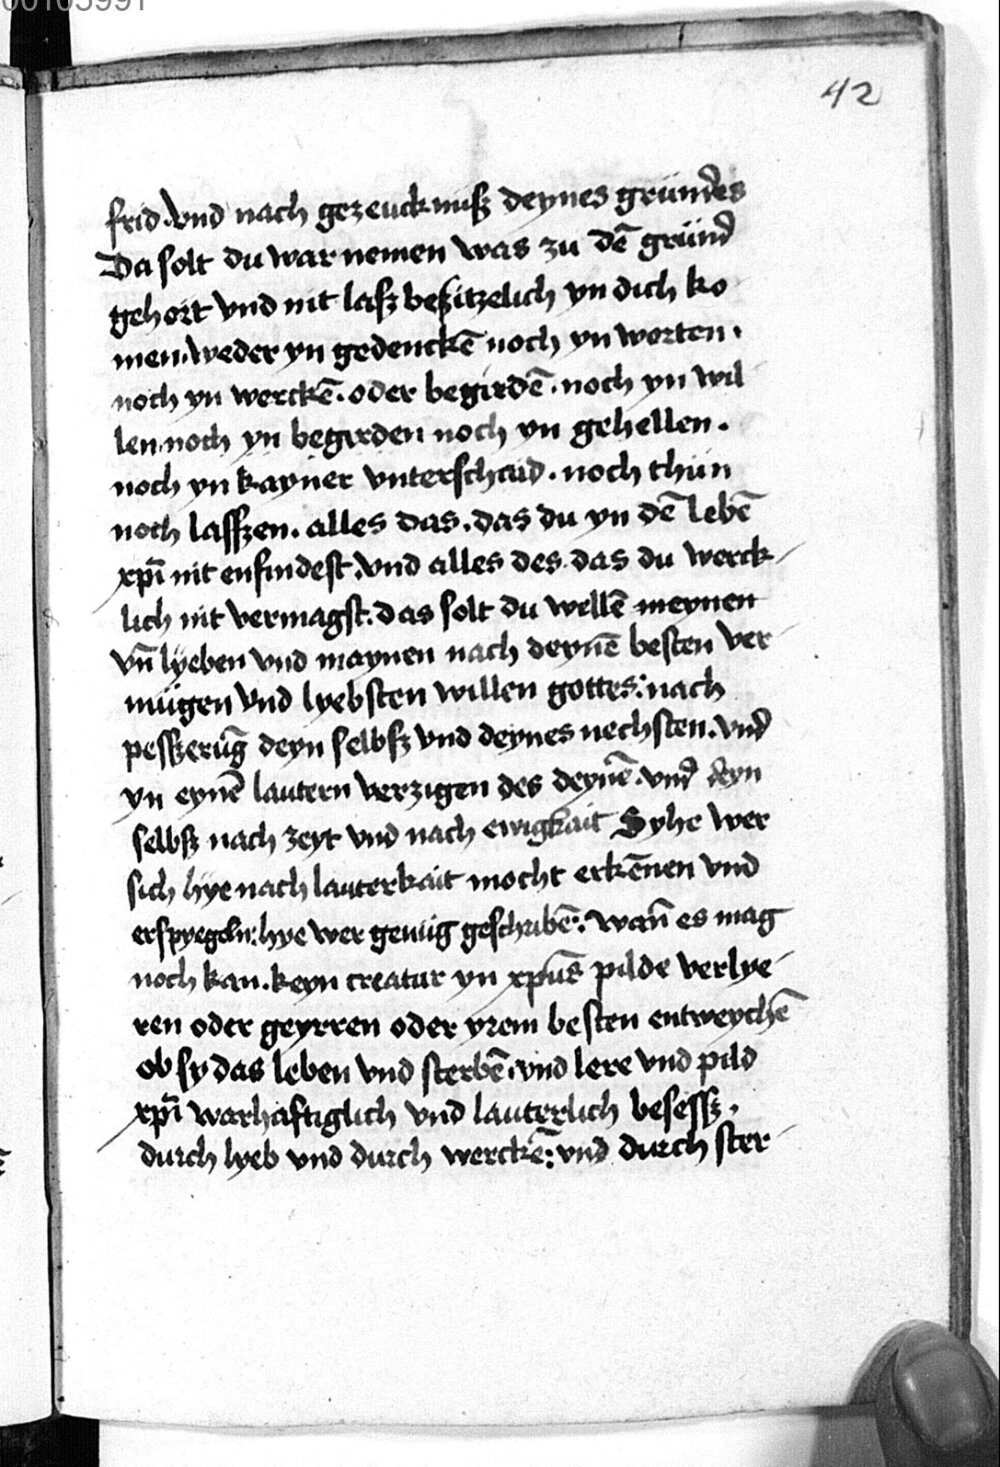 42
frid. vnd nach gezeucknuß deynes gründes
Da solt du war nemen was zu dē gründ
gehort vnd nit lasz beszitzelich yn dich ko
men. weder yn gedenckē noch yn worten.
noch yn werckē. oder begirdē. noch yn wil
len. noch yn begirden noch yn gehellen.
noch yn kayner vnterschaid. noch thün
noch lasszen. alles das. das du yn dē lebē
xpī nit enfindest. vnd alles des das du werck
lich nit vermagst. das solt du wellē meynen
vn̄ lyeben vnd maynen nach deynē besten ver
mügen vnd lyebsten willen gottes: nach
pesszerūg deyn selbsz vnd deynes nechsten. vnd
yn eynē lautern verzigen des deynē. vnd deyn
selbsz nach zeyt vnd nach ewigkait Syhe wer
sich hye nach lauterkait mocht erkēnen vnd
erspyegeln: hye wer genüg geschribē: wan̄ es mag
noch kan. keyn creatur yn xpūs pilde verlye
ren oder geyrren oder yrem besten entweychē
ob sy das leben vnd sterbē. vnd lere vnd pild
xpī warhaftiglich vnd lauterlich besessz.
durch lyeb vnd durch werckē: vnd durch ster